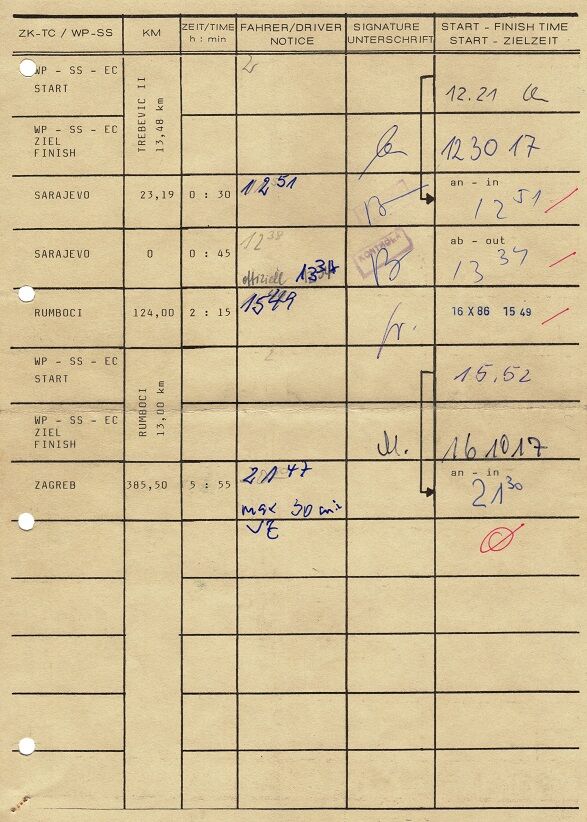 ZK-TC / WP-SS KM ZEIT/TIME FAHRER/DRIVER SIGNATURE START - FINISH TIME
h : min NOTICE UNTERSCHRIFT START - ZIELZEIT
WP - SS - EC
START
TREBEVIC II
13,48 km
12.21
WP - SS - EC
ZIEL
FINISH
12 30 17
SARAJEVO 23,19 0 : 30 12 51
an - in
12 51
SARAJEVO 0 0 : 45 12 38
offiziell 13 34
KONTROLA
ab - out
13 34
RUMBOCI 124,00 2 : 15 15 49
16 X 86 15 49
WP - SS - EC
START
RUMBOCI
13,00 km
2
15.52
WP - SS - EC
ZIEL
FINISH
M.
16 10 17
ZAGREB 385,50 5 : 55 21 47
max 30 min
VZ
an - in
21 30